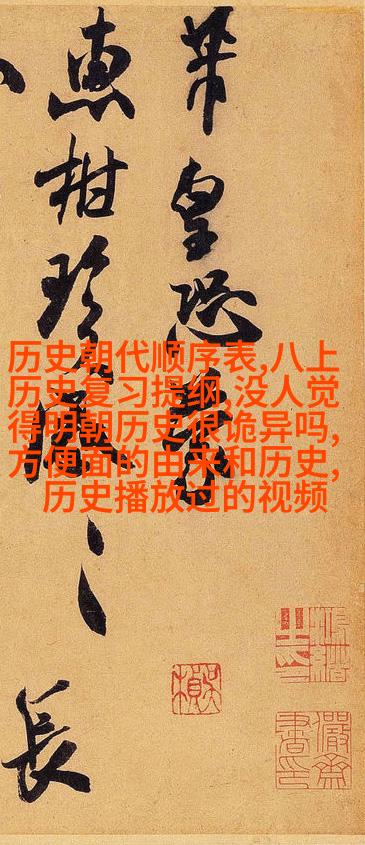 芾皇恐
惠柑珍感〻長
历史朝代顺序表,八上
历史复习提纲,没人觉
得明朝历史很诡异吗,
方便面的由来和历史,
历史播放过的视频
儼齋